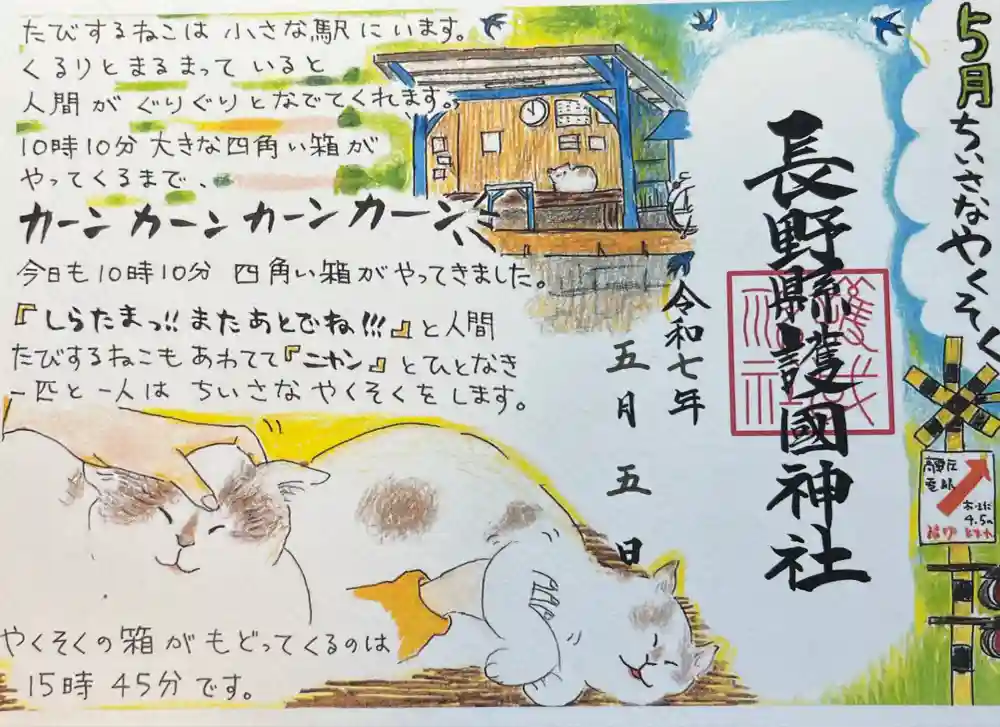 5月 ちいさなやくそく
長野縣護國神社
令和七年
五月 五日
たびするねこは 小さな駅にいます。
くるりとまるまって いると
人間が ぐりぐりとなでてくれます。
10時10分 大きな四角い箱が
やってくるまで、
カーン カーン カーン カーン
今日も10時10分 四角い箱がやってきました。
『しらたまっ!! またあとでね!!!』と人間
たびするねこも あわてて『ニャン』とひとなき
一匹と一人は ちいさな やくそくをします。
やくそくの箱 がもどってくるのは
15時 45分 です。
4.5m